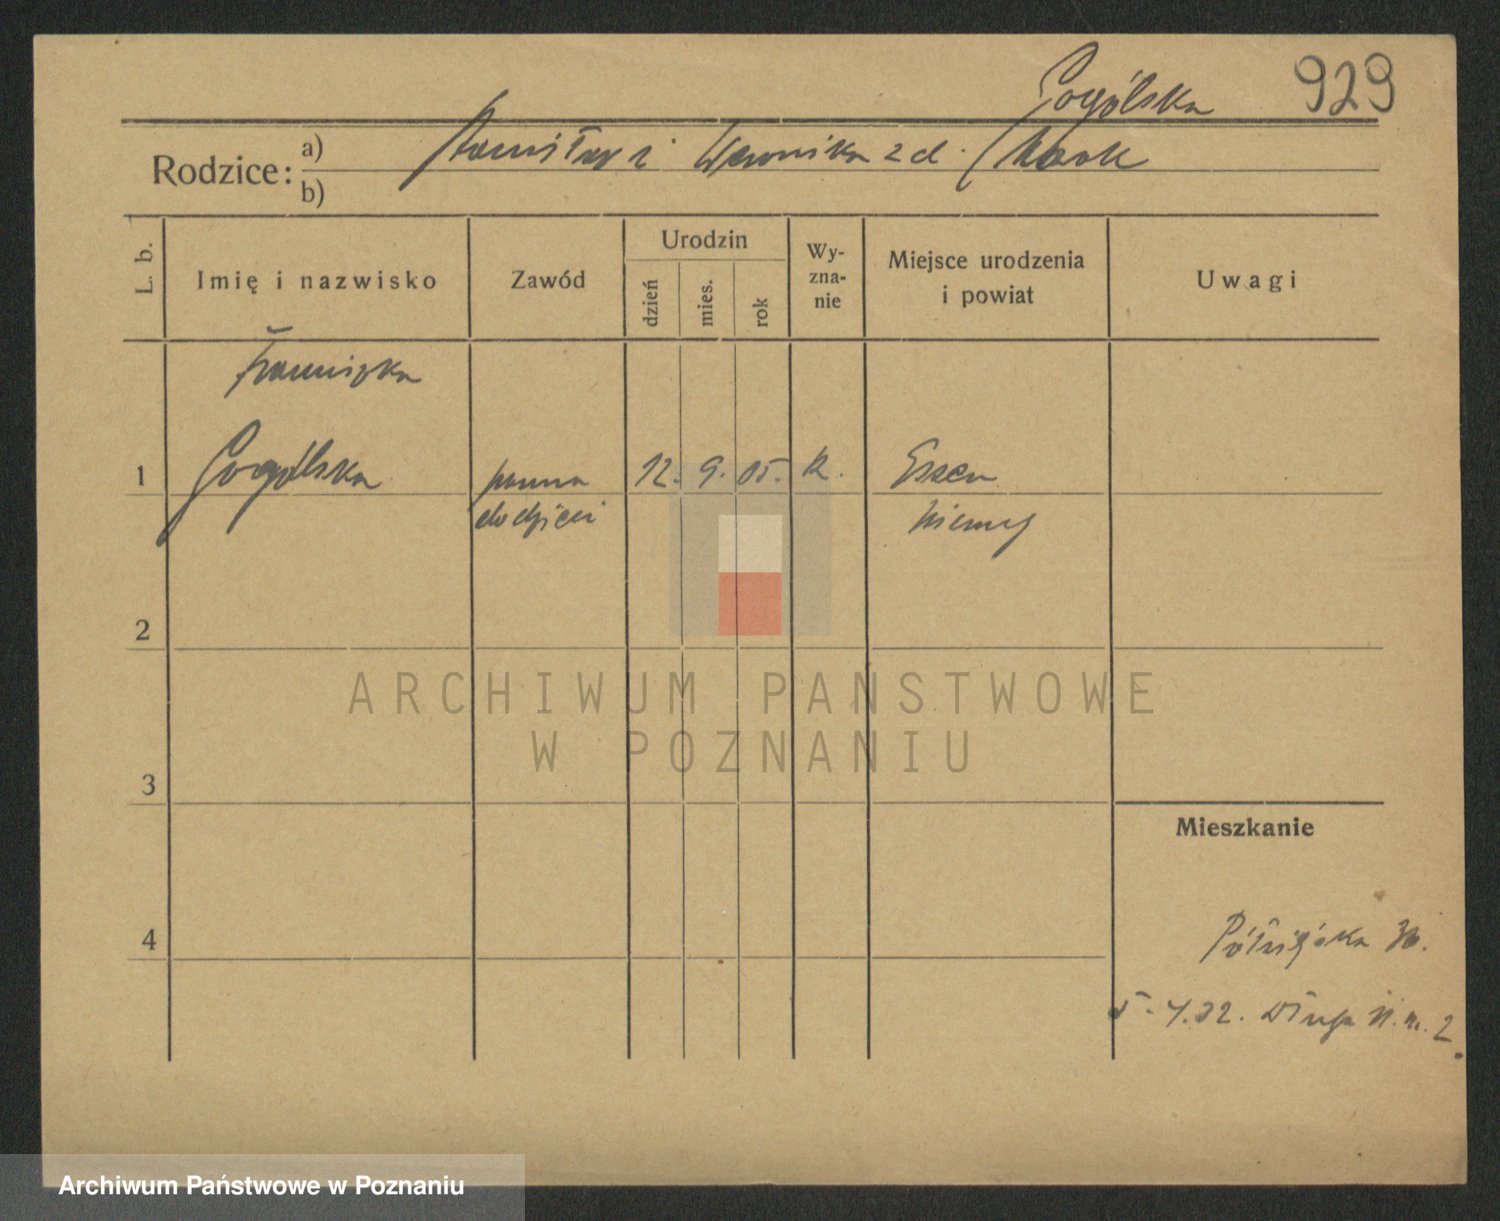 929
Gogólska
Rodzice: a) Stanisław i Weronika z d. Nowak
b)
L. b.
Imię i nazwisko
Zawód
Urodzin
dzień
mies.
rok
Wy-
zna-
nie
Miejsce urodzenia
i powiat
Uwagi
Franciszka
1 Gogólska panna 12. 9. 05. k. Essen
do dzieci Niemcy
2
ARCHIWUM PAŃSTWOWE
W POZNANIU
3
Mieszkanie
4
Półwiejska 36.
5. 4.32. Długa 11. m. 2.
Archiwum Państwowe w Poznaniu